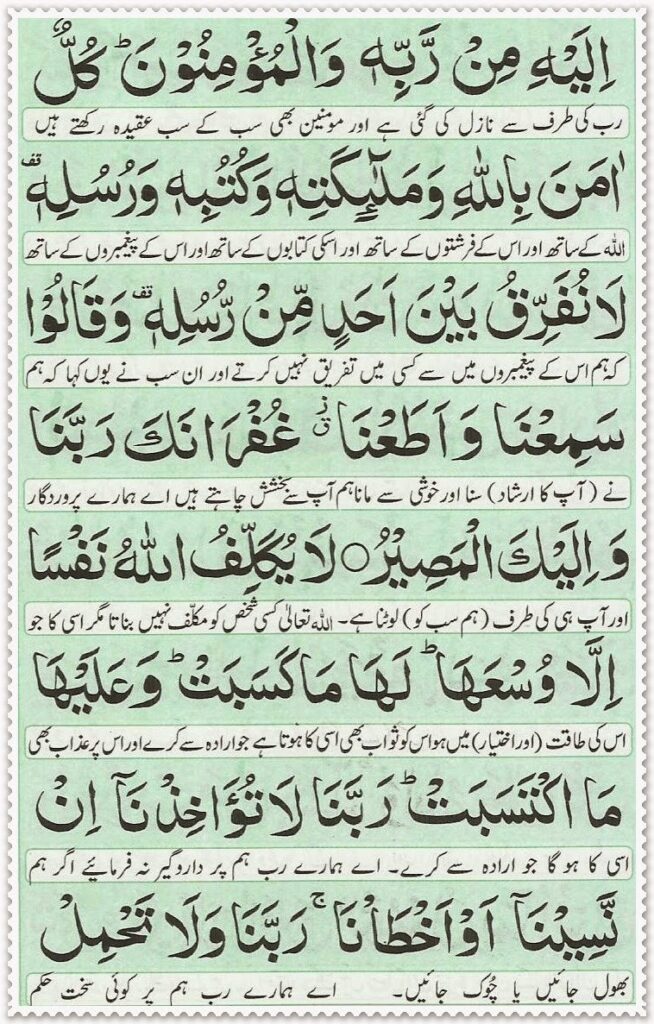 اِلَیْهِ مِنْ رَّبِّهٖ وَالْمُؤْمِنُوْنَ ؕ كُلٌّ
رب کی طرف سے نازل کی گئی ہے اور مومنین بھی سب کے سب عقیدہ رکھتے ہیں
اٰمَنَ بِاللّٰهِ وَمَلٰٓئِكَتِهٖ وَكُتُبِهٖ وَرُسُلِهٖ ۫قف
اللہ کے ساتھ اور اس کے فرشتوں کے ساتھ اور اسکی کتابوں کے ساتھ اور اس کے پیغمبروں کے ساتھ
لَا نُفَرِّقُ بَیْنَ اَحَدٍ مِّنْ رُّسُلِهٖ ۫قف وَقَالُوْا
کہ ہم اس کے پیغمبروں میں سے کسی میں تفریق نہیں کرتے اور ان سب نے یوں کہا کہ ہم
سَمِعْنَا وَاَطَعْنَا ۗ٘ غُفْرَانَكَ رَبَّنَا
نے (آپ کا ارشاد) سنا اور خوشی سے مانا ہم آپ سے بخشش چاہتے ہیں اے ہمارے پروردگار
وَاِلَیْكَ الْمَصِیْرُ ○ لَا یُكَلِّفُ اللّٰهُ نَفْسًا
اور آپ ہی کی طرف (ہم سب کو) لوٹنا ہے۔ اللہ تعالیٰ کسی شخص کو مکلّف نہیں بناتا مگر اسی کا جو
اِلَّا وُسْعَهَا ؕ لَهَا مَا كَسَبَتْ ؕ وَعَلَیْهَا
اس کی طاقت (اور اختیار) میں ہو اس کو ثواب بھی اسی کا ہوتا ہے جو ارادہ سے کرے اور اس پر عذاب بھی
مَا اكْتَسَبَتْ ؕ رَبَّنَا لَا تُؤَاخِذْنَاۤ اِنْ
اسی کا ہو گا جو ارادہ سے کرے۔ اے ہمارے رب ہم پر داروگیر نہ فرمائیے اگر ہم
نَّسِیْنَاۤ اَوْ اَخْطَاْنَا ۚ رَبَّنَا وَلَا تَحْمِلْ
بھول جائیں یا چُوک جائیں۔ اے ہمارے رب ہم پر کوئی سخت حکم